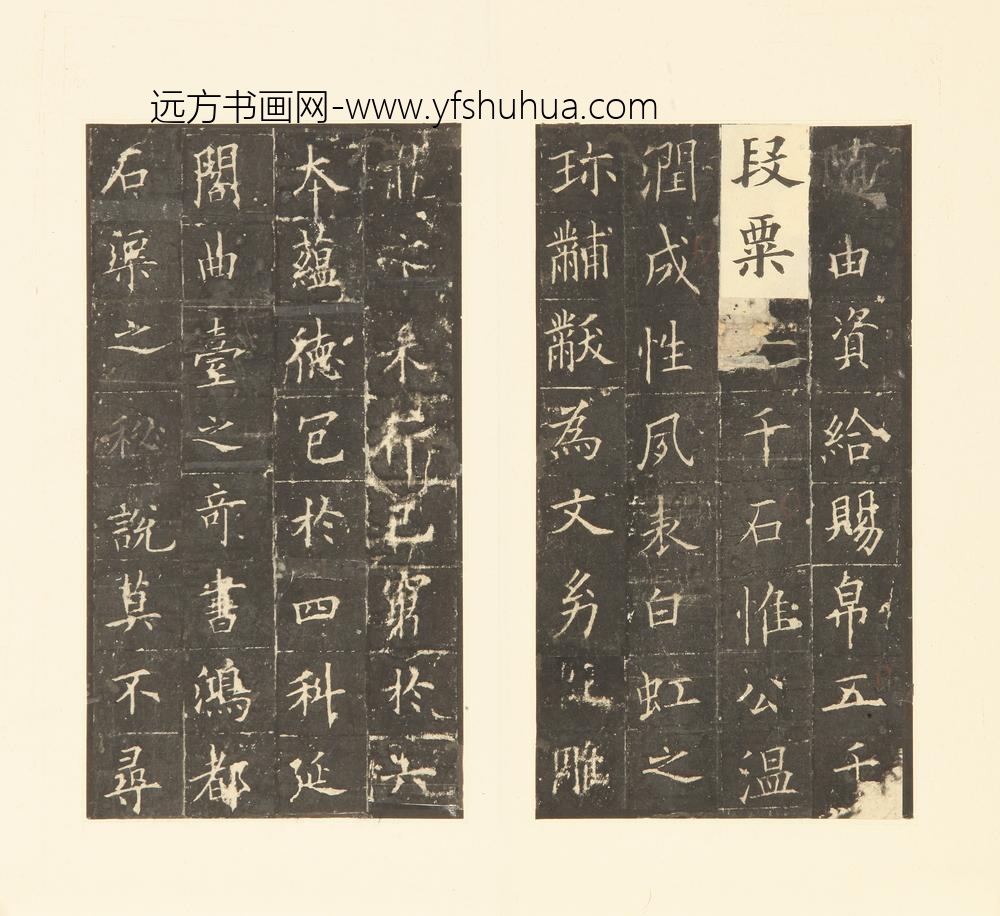 远方书画网-www.yfshuhua.com
由資給賜帛五千
段粟二千石惟公温
潤成性夙表白虹之
珎黼黻為文雕
之行已窮於六
本藴德冠於四科延
閣曲臺之奇書鴻都
石渠之秘說莫不尋